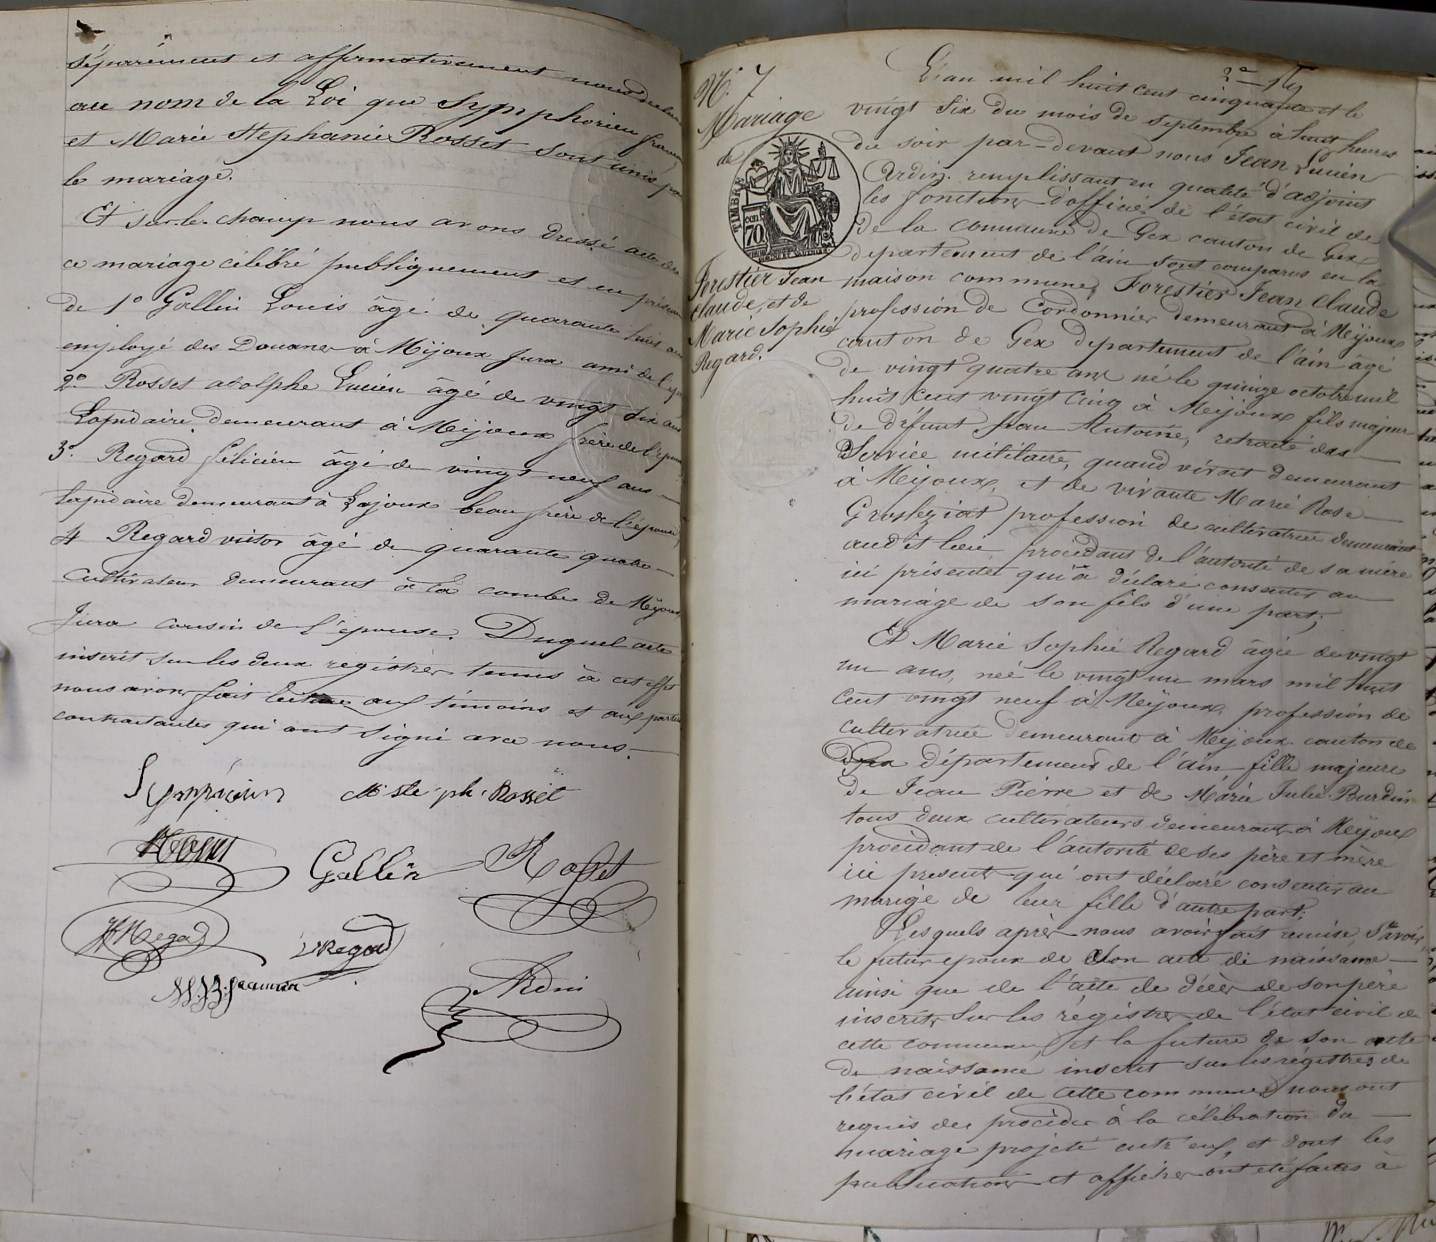 séparément et affirmativement nous déclarons
au nom de la Loi que Symphorien
et Marie Stephanie Rosset sont unis par
le mariage.
Et sur-le-champ nous avons dressé acte de
ce mariage célébré publiquement et en présence
de 1° Gallin Louis âgé de quarante huit ans
employé des Douanes à Mijoux Jura ami de l'époux
2° Rosset adolphe Lucien âgé de vingt six ans
Lapidaire demeurant à Meijoux frère de l'épouse
3° Regard félicien âgé de vingt neuf ans
Lapidaire demeurant à Lajoux beau frère de l'épouse,
4 Regard victor âgé de quarante quatre
Cultivateur demeurant à la combe de Mijoux
Jura cousin de l'épouse. Duquel acte
inscrit sur les deux registres tenus à cet effet
nous avons fait lecture aux témoins et aux parties
contractantes qui ont signé avec nous.
M ste ph. Rossét
Gallin
Rosset
Regad
VRegad
N° 7
Mariage
de
TIMBRE
70
Forestier Jean
Claude, et de
Marie Sophie
Regard.
L'an mil huit cent cinquante et le
vingt six du mois de septembre à huit heures
du soir par-devant nous Jean Lucien
remplissant en qualité d'adjoint
les fonctions d'officier de l'état civil de
de la commune de Gex canton de Gex
departement de l'ain sont comparus en la
maison commune, Forestier Jean Claude
profession de Cordonnier demeurant à Meijoux
canton de Gex département de l'ain âgé
de vingt quatre ans né le quinze octobre mil
huit cent vingt cinq à Meijoux fils majeur
de défunt Jean Antoine, retraité des
Service militaire, quand vivait demeurant
à Meijoux, et de vivante Marie Rose
Grosgziat profession de cultivatrice demeurant
audit lieu, procédant de l'autorité de sa mère
ici présente qui a déclaré consentir au
mariage de son fils d'une part;
Et Marie Sophie Regard âgée de vingt
un ans, née le vingt un mars mil huit
cent vingt neuf à Meijoux, profession de
cultivatrice demeurant à Meijoux canton de
Gex département de l'ain fille majeure
de Jean Pierre et de Marie Julie
tous deux cultivateurs demeurant à Meijoux
procédant de l'autorité de ses père et mère
ici present qui ont déclaré consentir au
marige de leur fille d'autre part.
Lesquels après nous avoir fait remise, Savoir,
le futur époux de son acte de naissance
ainsi que de l'acte de décès de son père
inscrits sur les régistres de l'état civil de
cette commune, et la future de son acte
de naissance inscrit sur les régistres de
l'état civil de cette commune, nous ont
requis de procéder à la célébration du
mariage projeté entr'eux, et dont les
publications et affiches ont été faites à